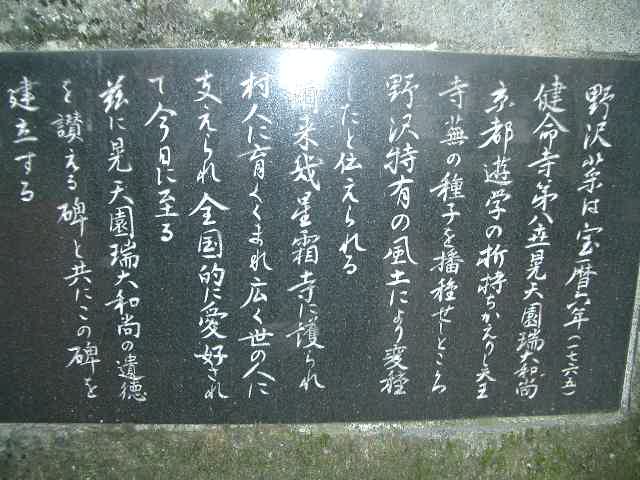 野沢菜は宝暦六年(一七六五)
健命寺第八世晃天園瑞大和尚
京都遊学の折持ちかえりし天王
寺蕪の種子を播種せしところ
野沢特有の風土により変種
したと伝えられる
爾来幾星霜寺に護られ
村人に育くくまれ広く世の人に
支えられ全国的に愛好され
て今日に至る
茲に晃天園瑞大和尚の遺徳
を讃える碑と共にこの碑を
建立する